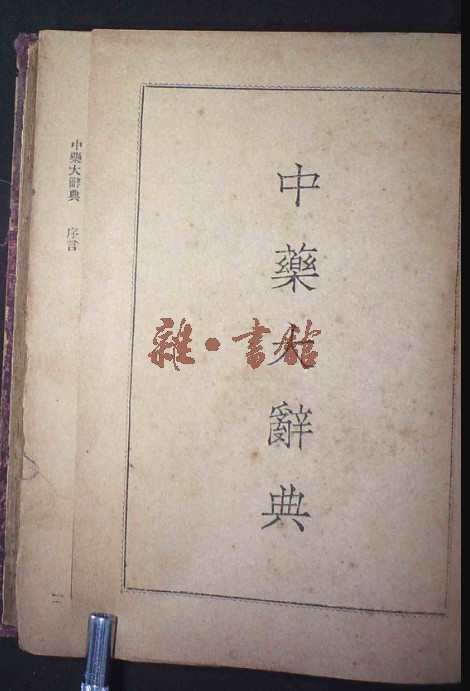 中藥大辭典
雜·書館
中藥大辭典 序言
二